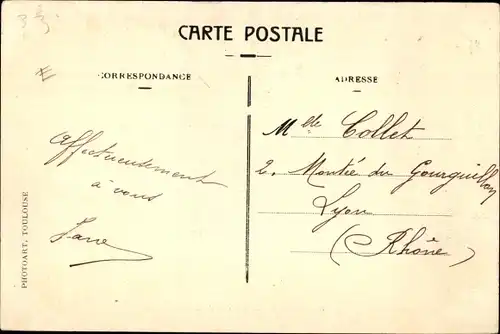 CARTE POSTALE
CORRESPONDANCE
ADRESSE
Affectueusement
à vous
Jane
Mlle Collet
2. Montée du Gourguillon
Lyon
(Rhône)
PHOTOART, TOULOUSE